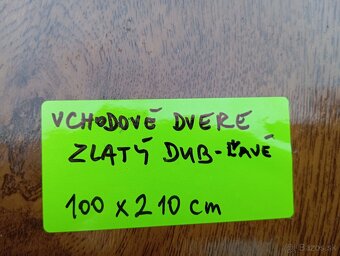 VCHODOVÉ DVERE
ZLATÝ DUB-ĽAVÉ
100 x 210 cm
Bazos.sk